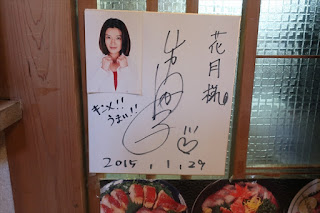 花月様
キンメ!!
うまい!!
2015.1.29